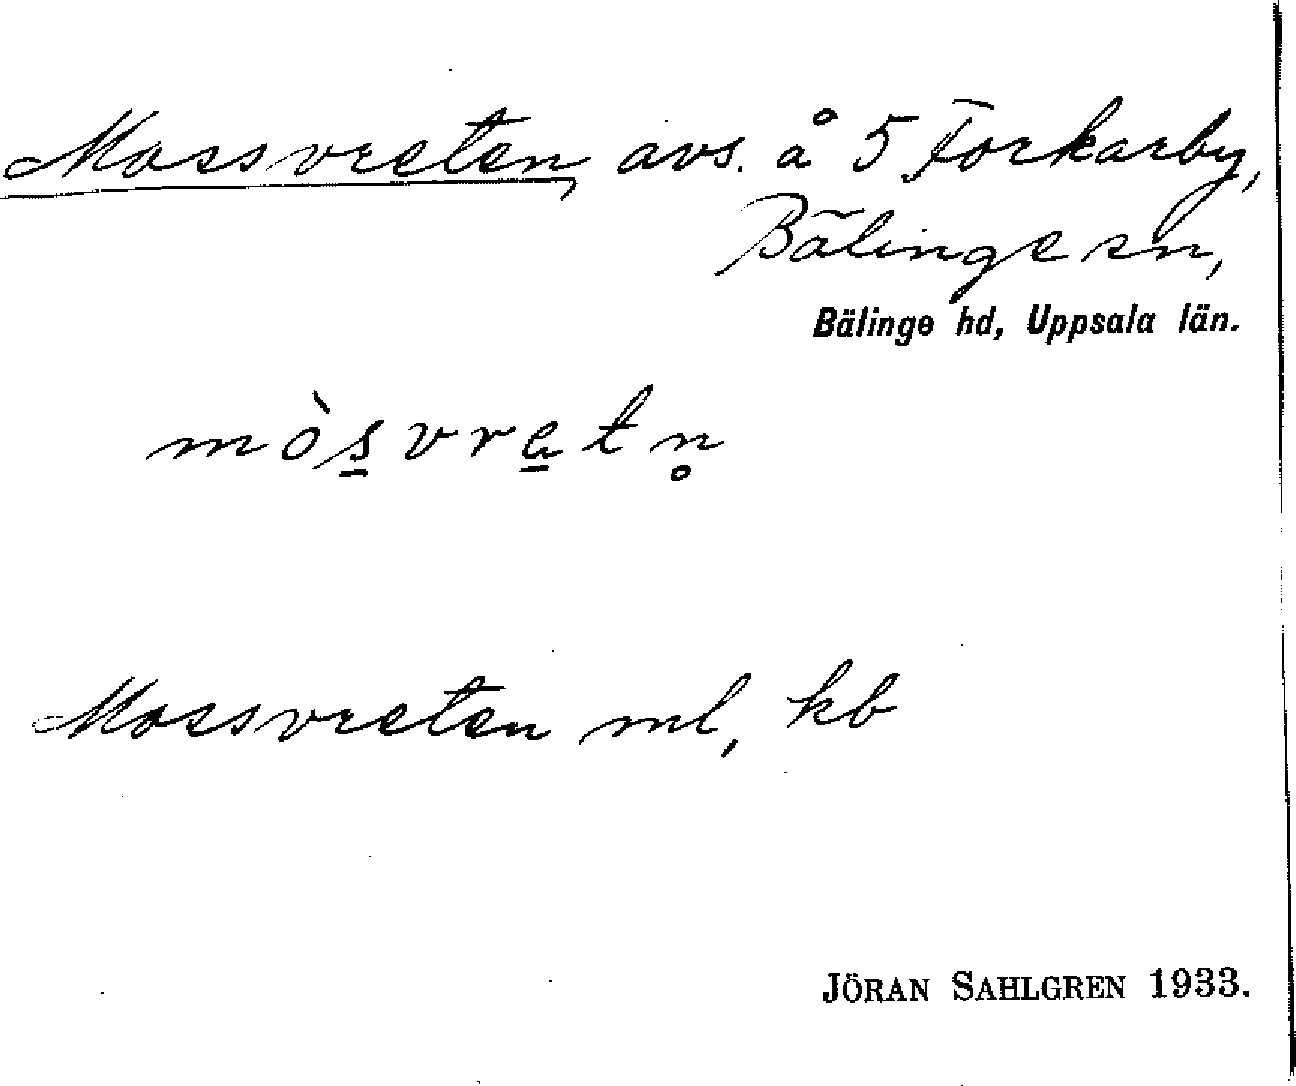 Mossvreten, avs. å 5 Forkarby,
Bälinge sn,
Bälinge hd, Uppsala län.
mòs̲vre̲tn̥
Mossvreten ml, kb
JÖRAN SAHLGREN 1933.